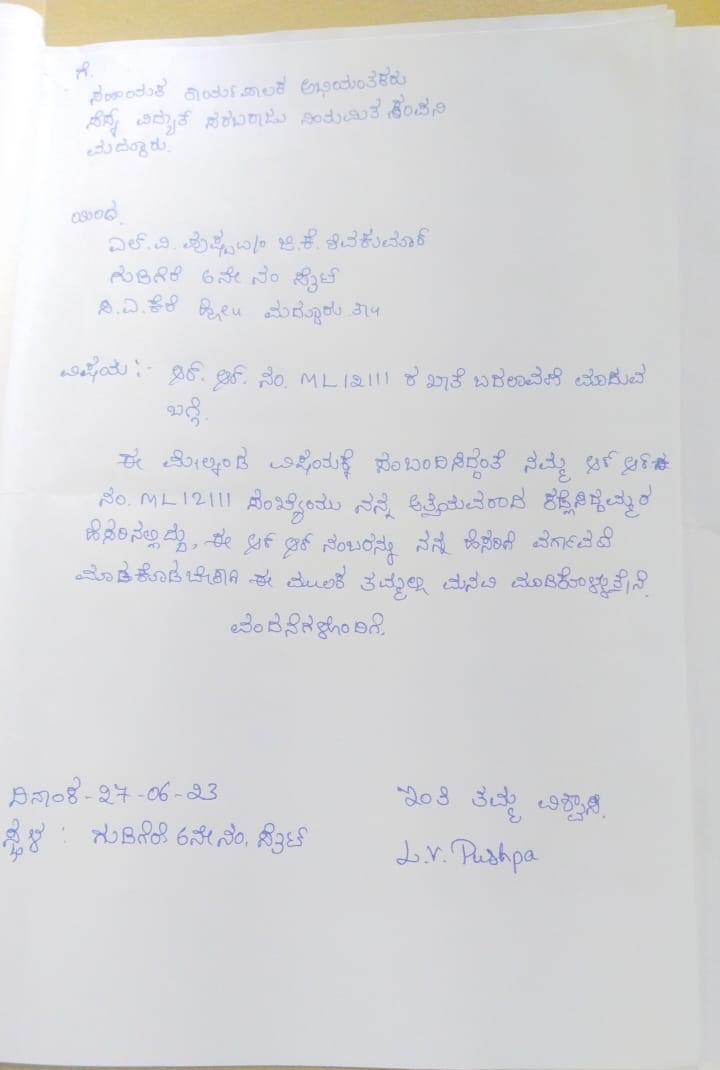 ಗೆ.
ಸಹಾಯಕ ಕಾರ್ಯಪಾಲಕ ಅಭಿಯಂತಕರು
ಸೆಸ್ಕ್ ವಿದ್ಯುತ್ ಸರಬರಾಜು ನಿಯಮಿತ ಕಂಪನಿ
ಮದ್ದೂರು.
ಯಿಂದ.
ಎಲ್.ವಿ. ಪುಷ್ಪ w/o ಜಿ.ಕೆ. ಶಿವಕುಮಾರ್
ಗುಡಿಗೆರೆ 6ನೇ ನಂ ಸೈಟ್
ಸಿ.ಎ.ಕೆರೆ ಹೋ॥ ಮದ್ದೂರು ತಾ॥
ವಿಷಯ :- ಆರ್. ಆರ್. ನಂ. ML12111 ರ ಖಾತೆ ಬದಲಾವಣೆ ಮಾಡುವ
ಬಗ್ಗೆ.
ಈ ಮೇಲ್ಕಂಡ ವಿಷಯಕ್ಕೆ ಸಂಬಂದಿಸಿದ್ದಂತೆ ನಮ್ಮ ಆರ್ ಆರ್
ನಂ. ML12111 ಸಂಖ್ಯೆಯು ನನ್ನ ಅತ್ತೆಯವರಾದ
ಹೆಸರಿನಲ್ಲಿದ್ದು, ಈ ಆರ್ ಆರ್ ನಂಬರನ್ನು ನನ್ನ ಹೆಸರಿಗೆ ವರ್ಗಾವಣೆ
ಮಾಡಕೊಡಬೇಕಾಗಿ ಈ ಮುಲಕ ತಮ್ಮಲ್ಲಿ ಮನವಿ ಮಾಡಿಕೊಳ್ಳುತ್ತೇನೆ.
ವಂದನೆಗಳೊಂದಿಗೆ.
ದಿನಾಂಕ - 27-06-23
ಇಂತಿ ತಮ್ಮ ವಿಶ್ವಾಸಿ.
ಸ್ಥಳ : ಗುಡಿಗೆರೆ 6ನೇ ನಂ. ಸೈಟ್
L.V. Pushpa